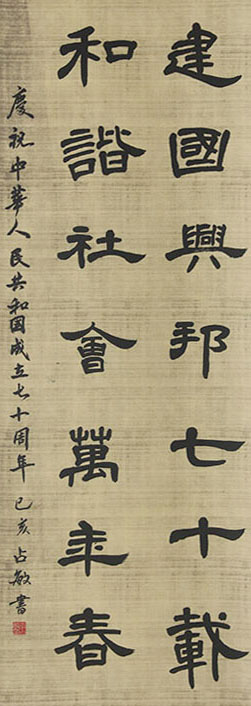 建國興邦七十載
和諧社會萬年春
慶祝中華人民共和國成立七十周年 己亥 占敏書